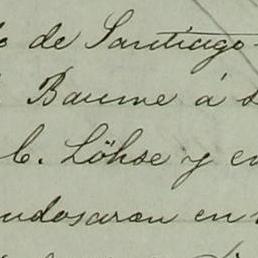 de Santiago
Baume á
C. Löhse y en
endosaron en